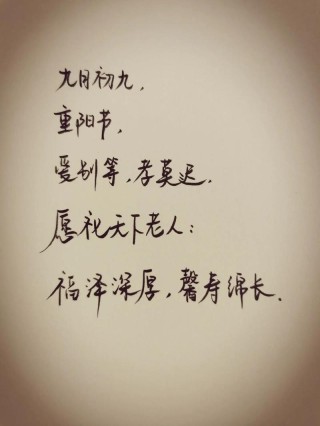 九月初九，
重阳节，
爱别等，孝莫迟。
愿祝天下老人：
福泽深厚，馨寿绵长。